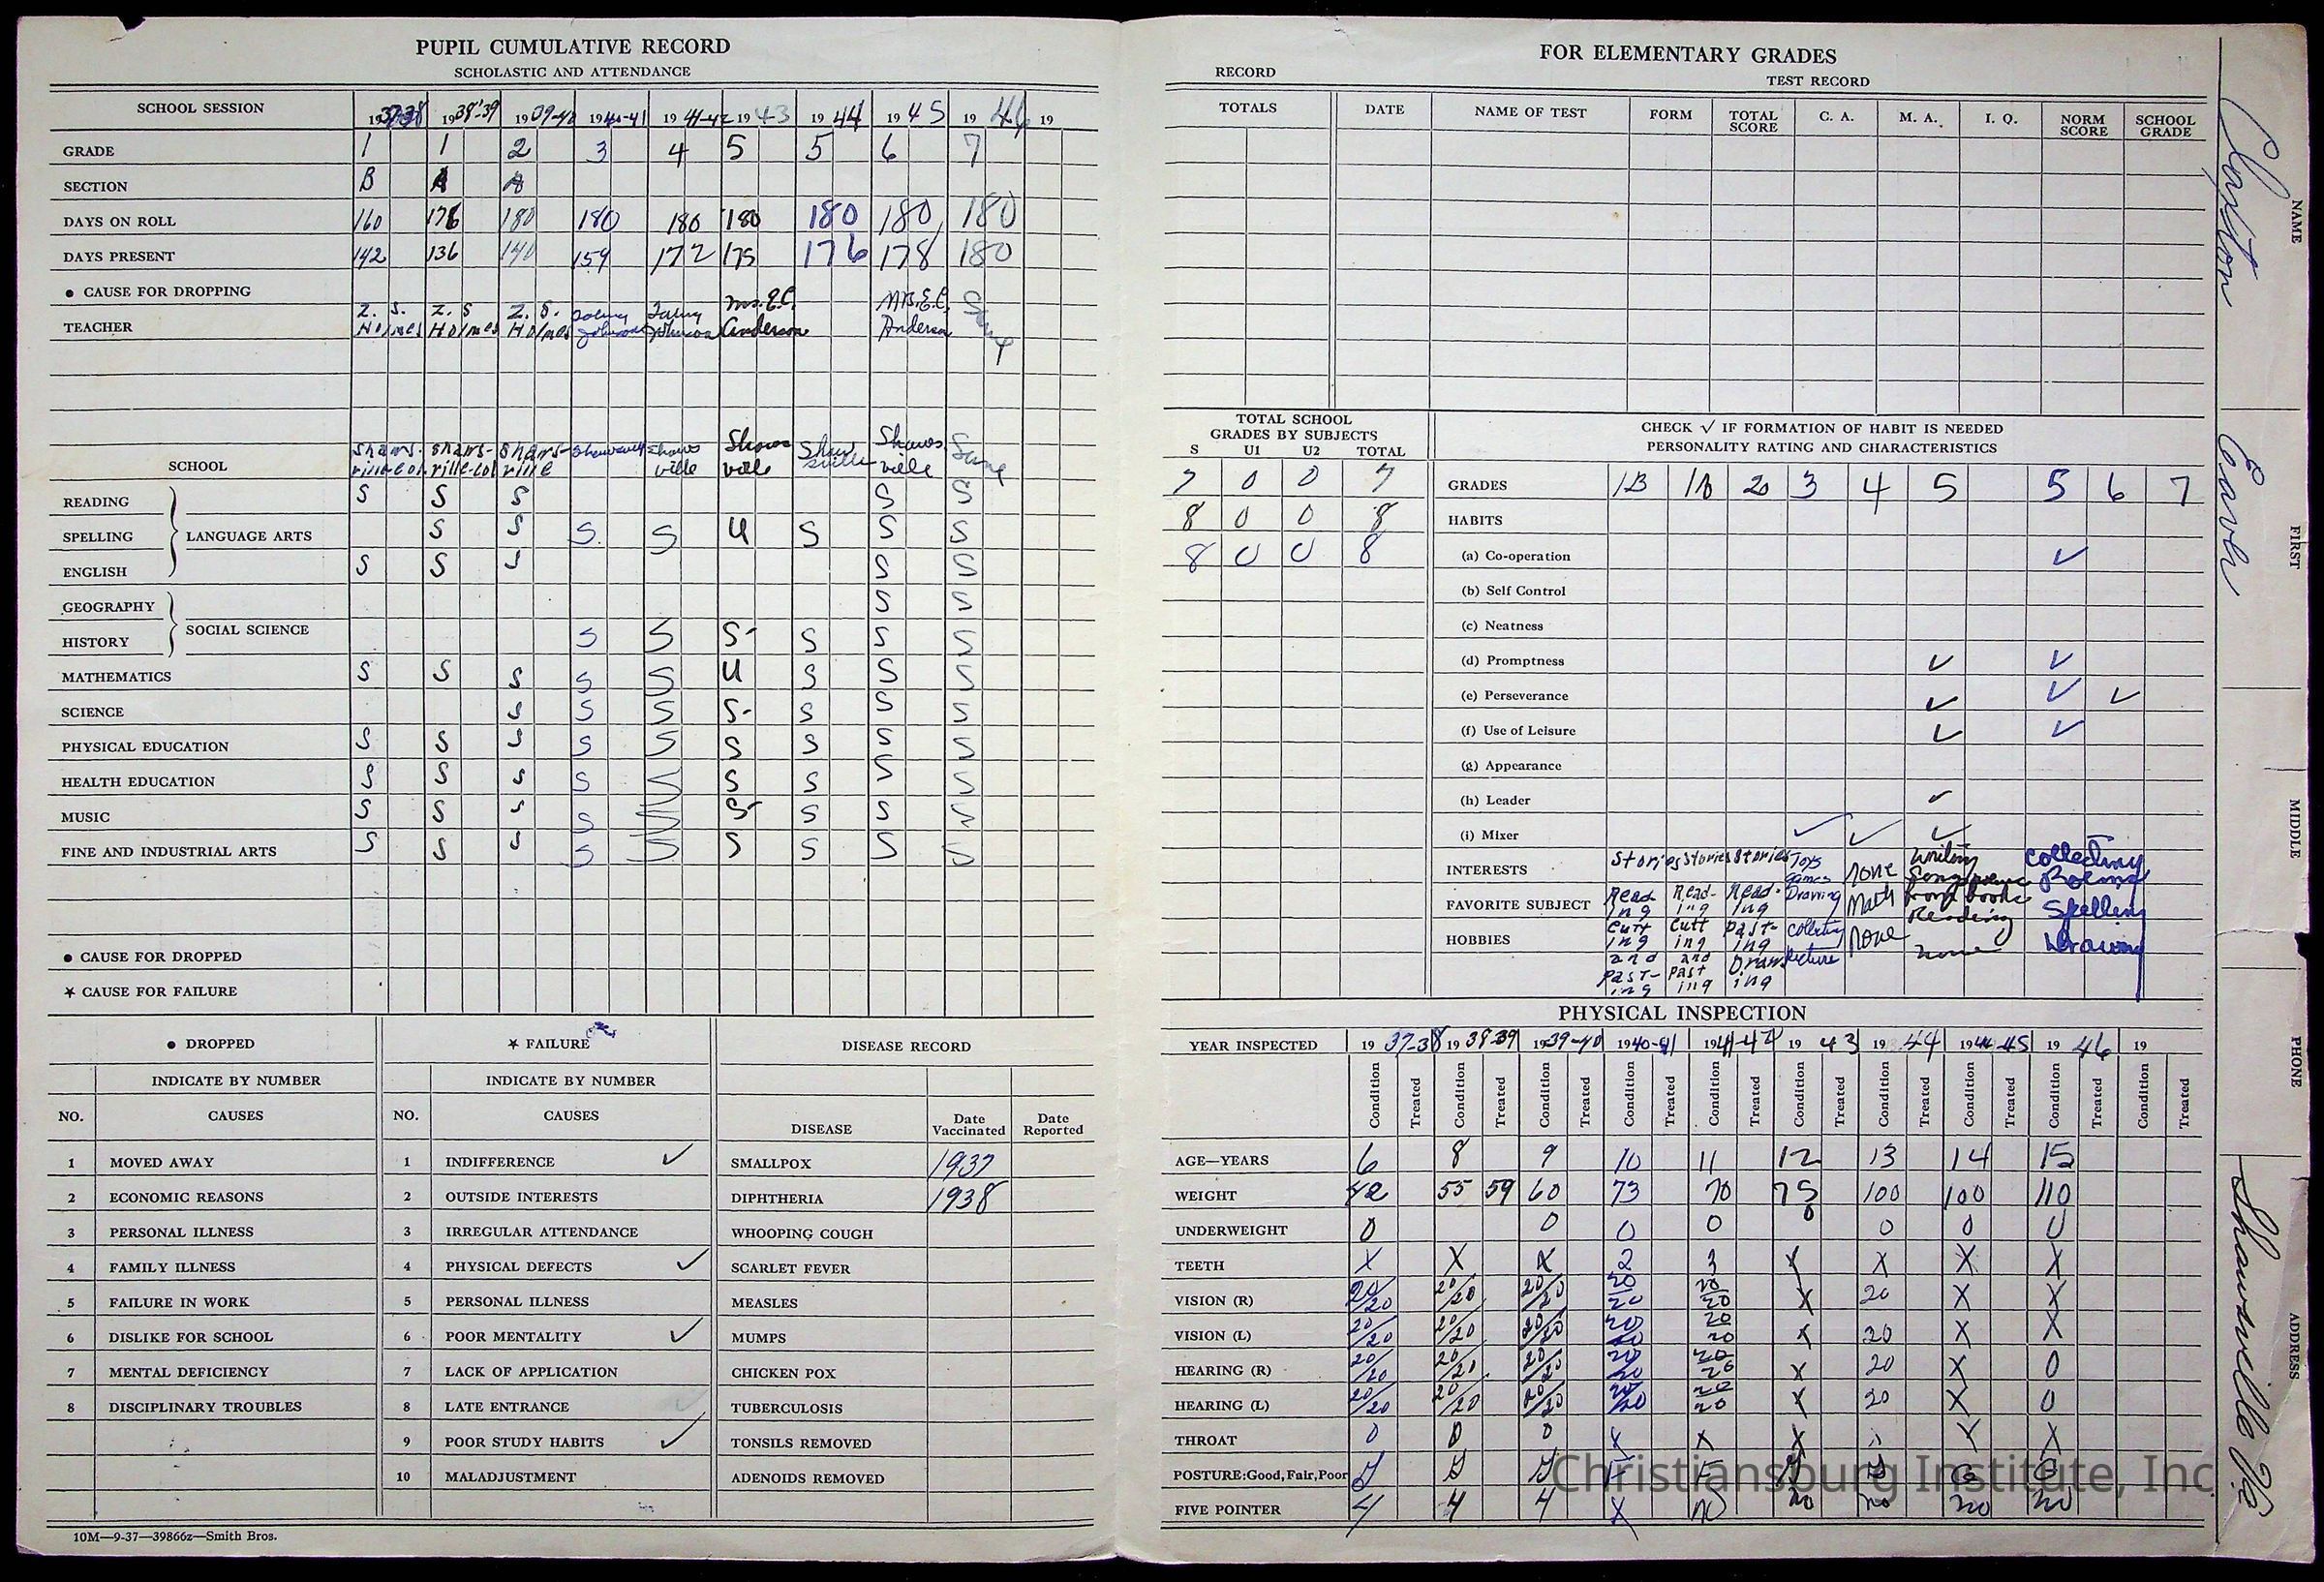 PUPIL CUMULATIVE RECORD
SCHOLASTIC AND ATTENDANCE
SCHOOL SESSION 1937-38 1938-39 1939-40 1940-41 1941-42 1943 1944 1945 1946 19
GRADE 1 1 2 3 4 5 5 6 7
SECTION B A A
DAYS ON ROLL 160 176 180 180 180 180 180 180 180
DAYS PRESENT 142 136 140 159 172 175 176 178 180
• CAUSE FOR DROPPING
TEACHER Z. S. Holmes Z. S Holmes Z. S. Holmes Johnson Johnson Mrs. E.C. Anderson Mrs. E.C. Anderson Same
SCHOOL Shaws-ville-col. Shaws-ville-col Shaws-ville Shawsville Shawsville Shawsville Shawsville Shawsville Same
READING S S S S S
SPELLING LANGUAGE ARTS S S S S U S S S
ENGLISH S S S S S
GEOGRAPHY S S
HISTORY SOCIAL SCIENCE S S S- S S S
MATHEMATICS S S S S S U S S S
SCIENCE S S S S- S S S
PHYSICAL EDUCATION S S S S S S S S S
HEALTH EDUCATION S S S S S S S S S
MUSIC S S S S S S- S S S
FINE AND INDUSTRIAL ARTS S S S S S S S S S
• CAUSE FOR DROPPED
★ CAUSE FOR FAILURE
• DROPPED
INDICATE BY NUMBER
NO. CAUSES
1 MOVED AWAY
2 ECONOMIC REASONS
3 PERSONAL ILLNESS
4 FAMILY ILLNESS
5 FAILURE IN WORK
6 DISLIKE FOR SCHOOL
7 MENTAL DEFICIENCY
8 DISCIPLINARY TROUBLES
★ FAILURE
INDICATE BY NUMBER
NO. CAUSES
1 INDIFFERENCE ✓
2 OUTSIDE INTERESTS
3 IRREGULAR ATTENDANCE
4 PHYSICAL DEFECTS ✓
5 PERSONAL ILLNESS
6 POOR MENTALITY ✓
7 LACK OF APPLICATION
8 LATE ENTRANCE ✓
9 POOR STUDY HABITS ✓
10 MALADJUSTMENT
DISEASE RECORD
DISEASE Date Vaccinated Date Reported
SMALLPOX 1937
DIPHTHERIA 1938
WHOOPING COUGH
SCARLET FEVER
MEASLES
MUMPS
CHICKEN POX
TUBERCULOSIS
TONSILS REMOVED
ADENOIDS REMOVED
10M—9-37—39866z—Smith Bros.
FOR ELEMENTARY GRADES
RECORD
TEST RECORD
TOTALS DATE NAME OF TEST FORM TOTAL SCORE C. A. M. A. I. Q. NORM SCORE SCHOOL GRADE
TOTAL SCHOOL
GRADES BY SUBJECTS
S U1 U2 TOTAL
7 0 0 7
8 0 0 8
8 0 0 8
CHECK ✓ IF FORMATION OF HABIT IS NEEDED
PERSONALITY RATING AND CHARACTERISTICS
GRADES 1B 1A 2 3 4 5 5 6 7
HABITS
(a) Co-operation ✓
(b) Self Control
(c) Neatness
(d) Promptness ✓ ✓
(e) Perseverance ✓ ✓ ✓
(f) Use of Leisure ✓ ✓
(g) Appearance
(h) Leader ✓
(i) Mixer ✓ ✓ ✓
INTERESTS Stories Stories Stories Toys Games None Writing Collecting Poems
FAVORITE SUBJECT Reading Reading Reading Drawing Math Reading Spelling
HOBBIES Cutting and Pasting Cutting and Pasting Pasting Drawing Collecting Picture None none Drawing
PHYSICAL INSPECTION
YEAR INSPECTED 1937-38 1938-39 1939-40 1940-41 1941-42 1943 1944 1944-45 1946 19
Condition Treated Condition Treated Condition Treated Condition Treated Condition Treated Condition Treated Condition Treated Condition Treated Condition Treated Condition Treated
AGE—YEARS 6 8 9 10 11 12 13 14 15
WEIGHT 42 55 59 60 73 70 75 100 100 110
UNDERWEIGHT 0 0 0 0 0 0 0 0
TEETH X X X 2 3 X X X X
VISION (R) 20/20 20/20 20/20 20/20 20/20 X 20 X X
VISION (L) 20/20 20/20 20/20 20/20 20/20 X 20 X X
HEARING (R) 20/20 20/20 20/20 20/20 20/20 X 20 X 0
HEARING (L) 20/20 20/20 20/20 20/20 20/20 X 20 X 0
THROAT 0 0 0 X X X X X
POSTURE: Good, Fair, Poor G G G F F G G G G
FIVE POINTER 4 4 4 X no no no no no
Christiansburg Institute, Inc
NAME
FIRST
MIDDLE
PHONE
ADDRESS
Shawsville Va